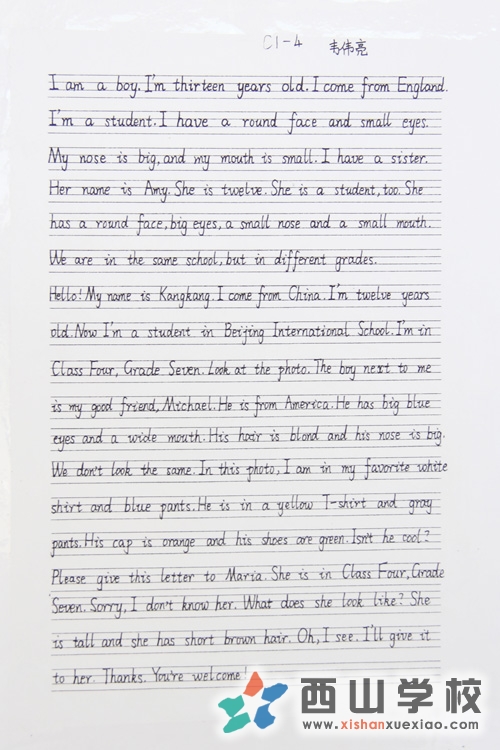 C1-4 韦伟亮
I am a boy. I'm thirteen years old. I come from England.
I'm a student. I have a round face and small eyes.
My nose is big, and my mouth is small. I have a sister.
Her name is Amy. She is twelve. She is a student, too. She
has a round face, big eyes, a small nose and a small mouth.
We are in the same school, but in different grades.
Hello! My name is Kangkang. I come from China. I'm twelve years
old. Now I'm a student in Beijing International School. I'm in
Class Four, Grade Seven. Look at the photo. The boy next to me
is my good friend, Michael. He is from America. He has big blue
eyes and a wide mouth. His hair is blond and his nose is big.
We don't look the same. In this photo, I am in my favorite white
shirt and blue pants. He is in a yellow T-shirt and gray
pants. His cap is orange and his shoes are green. Isn't he cool?
Please give this letter to Maria. She is in Class Four, Grade
Seven. Sorry, I don't know her. What does she look like? She
is tall and she has short brown hair. Oh, I see. I'll give it
to her. Thanks. You're welcome!
西山学校
www.xishanxuexiao.com